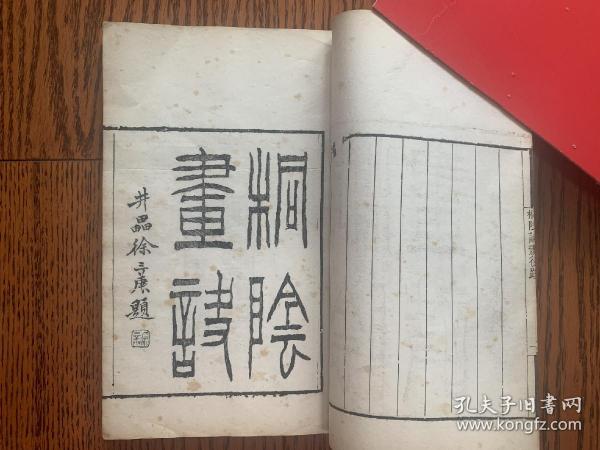 桐陰
畫訣
井畾徐三庚題
孔夫子旧书网
www.kongfz.com